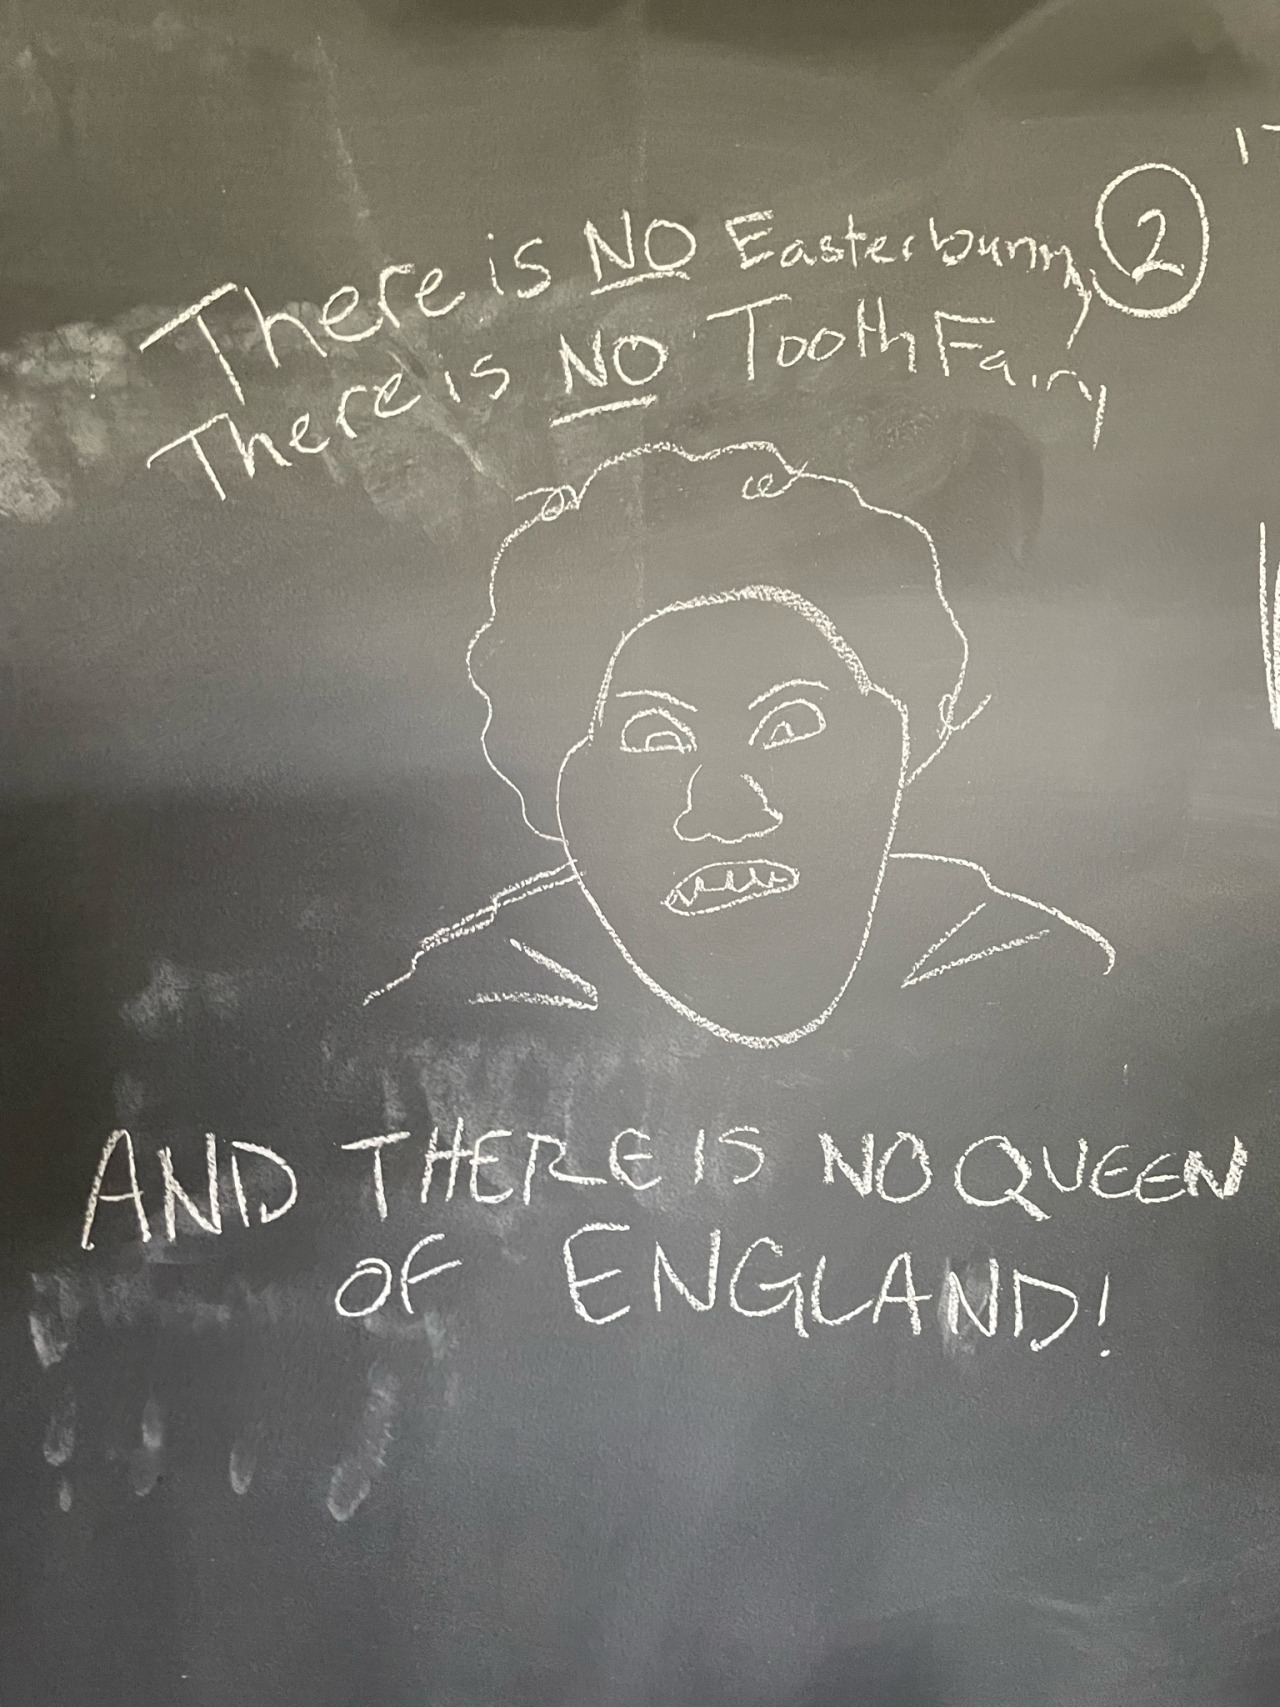 There is NO Easterbunny, 2
There is NO Tooth Fairy
AND THERE IS NO QUEEN
OF ENGLAND!